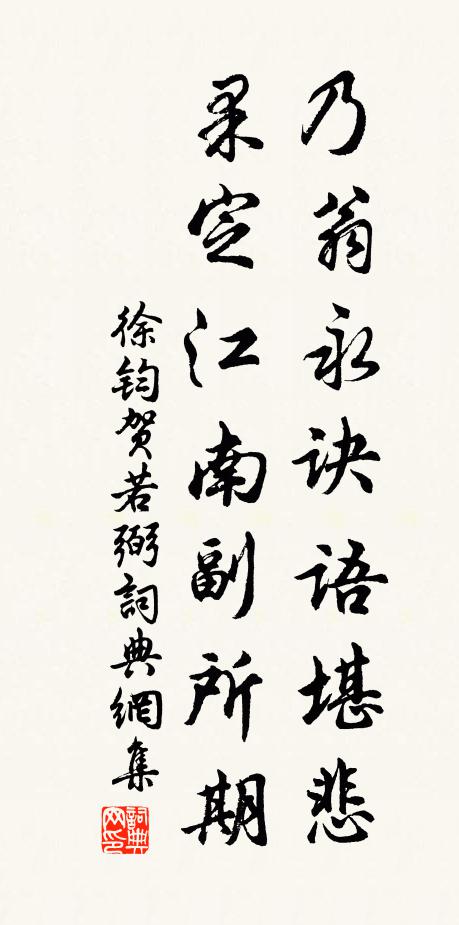 乃翁永诀语堪悲
果定江南副所期
徐钧贺若弼詞典網集
詞典网印